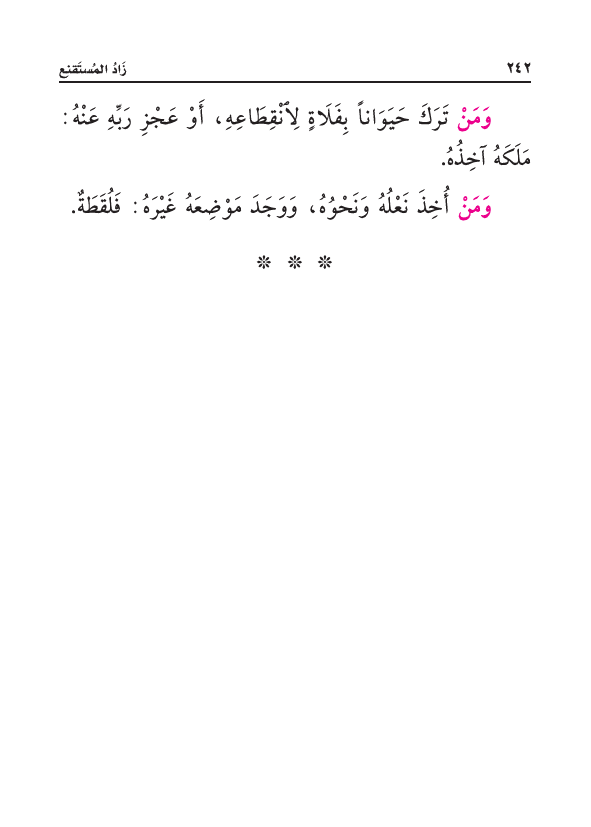 ٢٤٢ زَادُ المُستَقنِع
وَمَنْ تَرَكَ حَيَوَاناً بِفَلَاةٍ لِٱنْقِطَاعِهِ، أَوْ عَجْزِ رَبِّهِ عَنْهُ:
مَلَكَهُ آخِذُهُ.
وَمَنْ أُخِذَ نَعْلُهُ وَنَحْوُهُ، وَوَجَدَ مَوْضِعَهُ غَيْرَهُ: فَلُقَطَةٌ.
❊ ❊ ❊